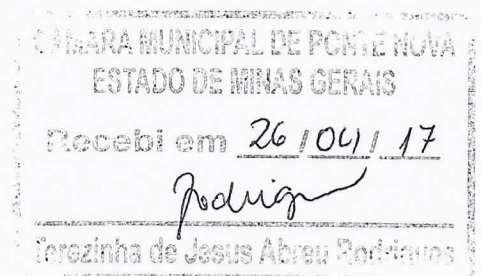 CÂMARA MUNICIPAL DE PONTE NOVA
ESTADO DE MINAS GERAIS
Recebi em 26/04/17
Rodrigu
Terezinha de Jesus Abreu Rodrigues